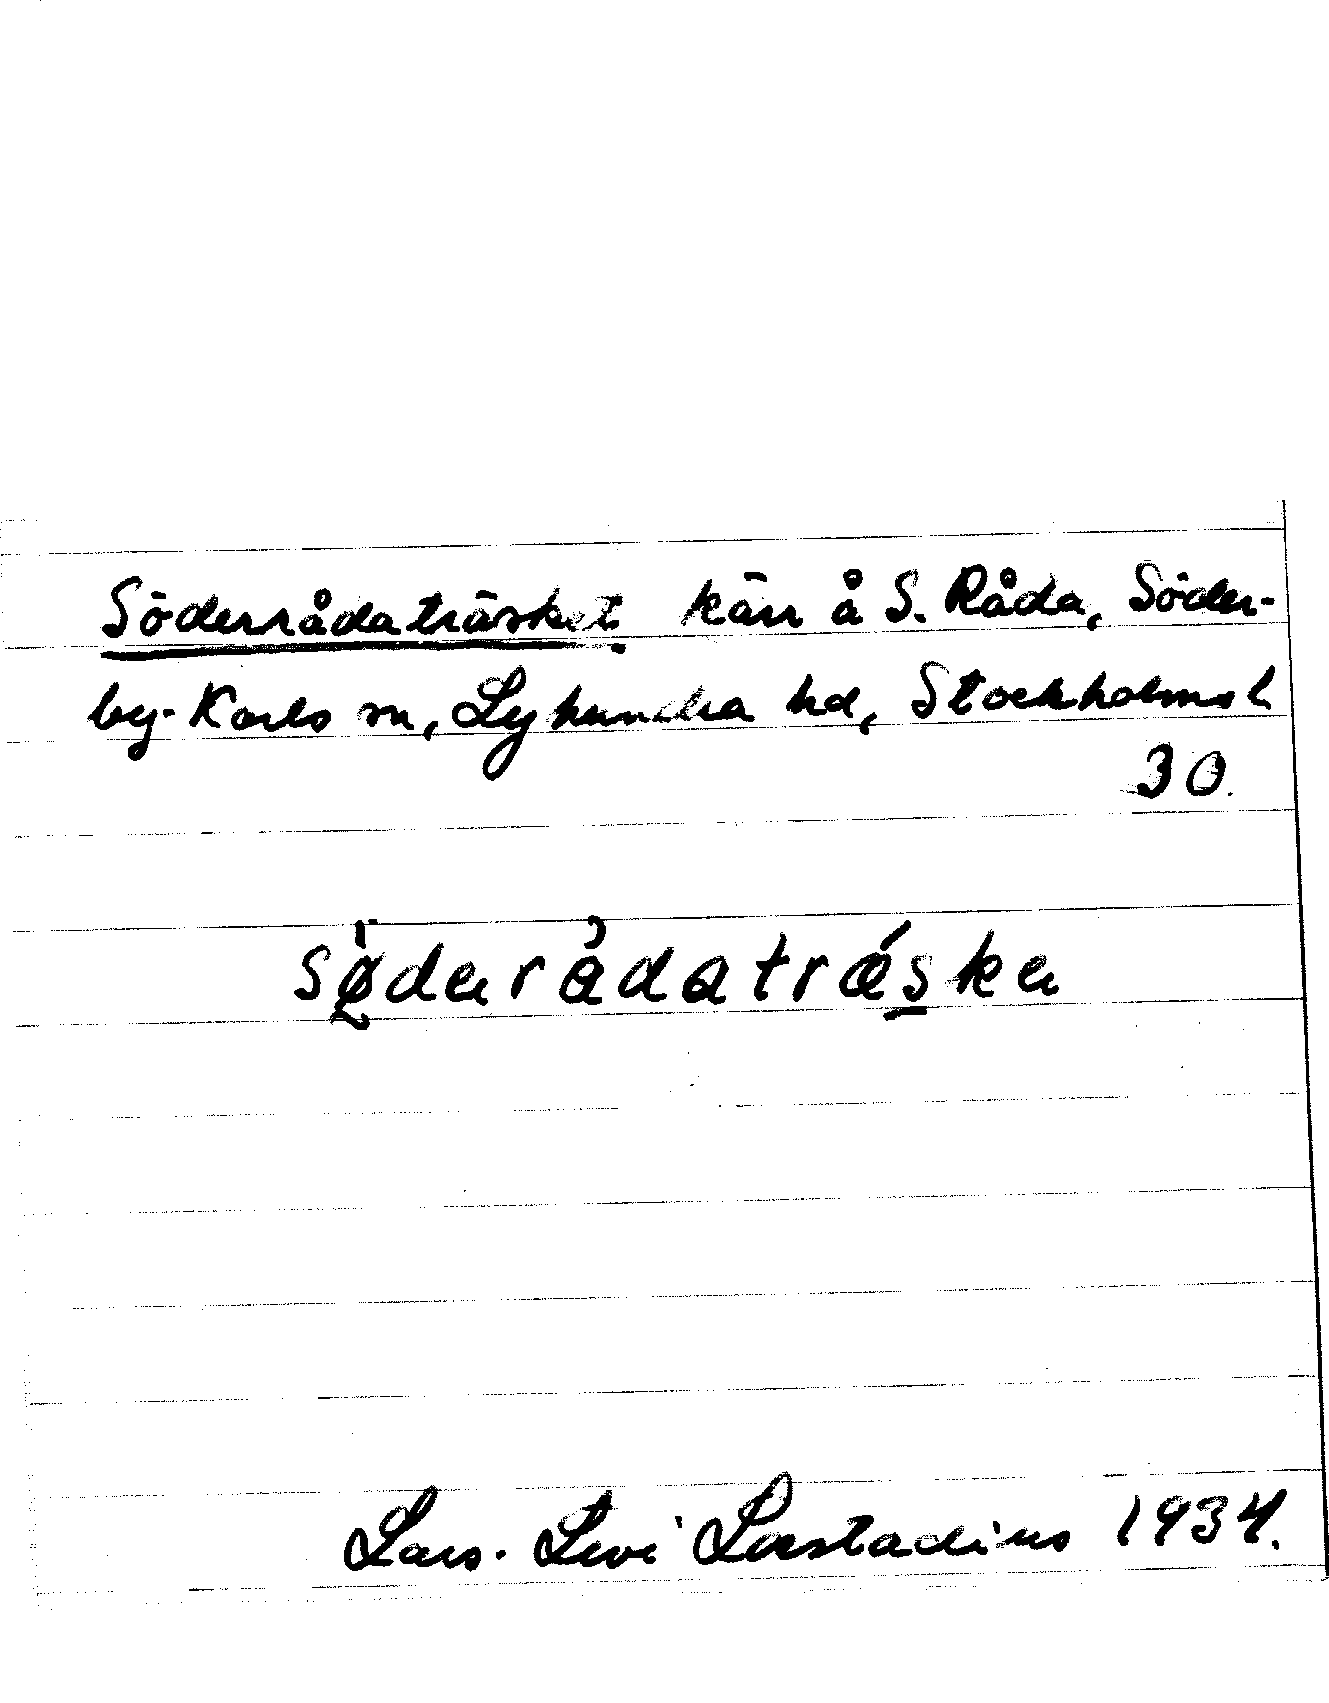 Söderrådaträsket kärr å S. Råda, Söder-
by-Karls sn, Lyhundra hd, Stockholms l.
30.
sø̀derådatrǽsker
Lars-Levi Læstadius 1934.